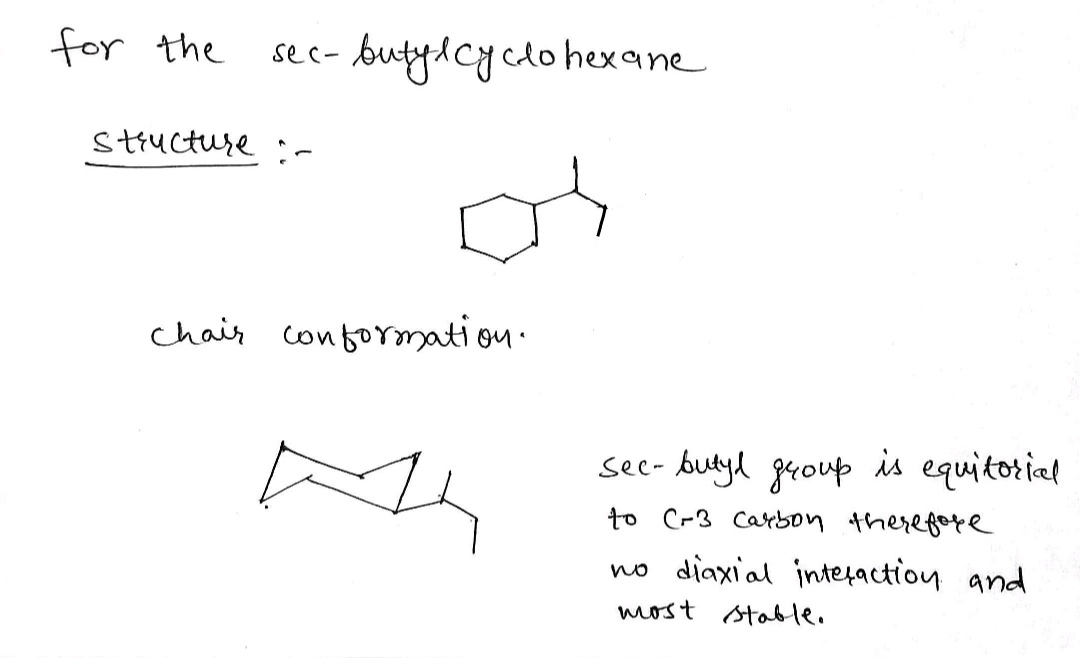 for the sec-butylcyclohexane
structure :-
chair conformation.
sec-butyl group is equitorial
to C-3 carbon therefore
no diaxial interaction and
most stable.